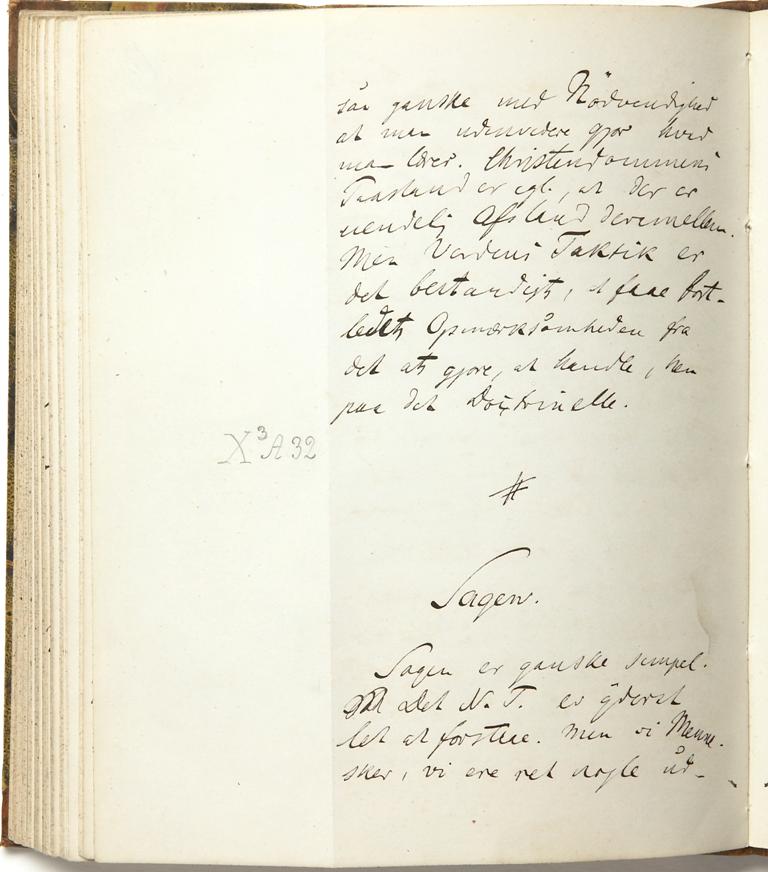 saa ganske med Nødvendighed
at man udenvidere gjør hvad
man lærer. Christendommens
Paastand er egl., at der er
uendelig Afstand deremellem.
Men Verdens Taktik er
det bestandigt, at faae bort-
ledet Opmærksomheden fra
det at gjøre, at handle, hen
paa det Doctrinelle.
X³A32
#
Sagen.
Sagen er ganske simpel.
Det N. T. er yderst
let at forstaae. Men vi Menne-
sker, vi ere ret nogle ud-